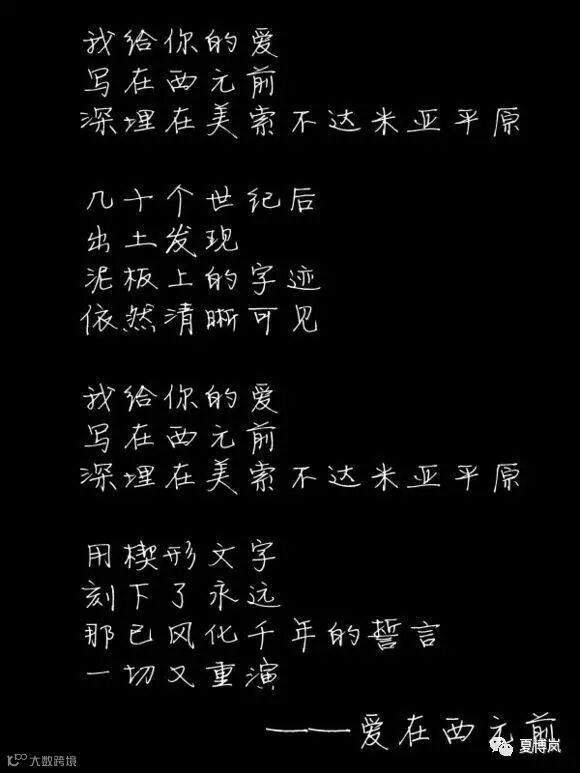 我给你的爱
写在西元前
深埋在美索不达米亚平原
几十个世纪后
出土发现
泥板上的字迹
依然清晰可见
我给你的爱
写在西元前
深埋在美索不达米亚平原
用楔形文字
刻下了永远
那已风化千年的誓言
一切又重演
——爱在西元前
大数跨境
夏博岚